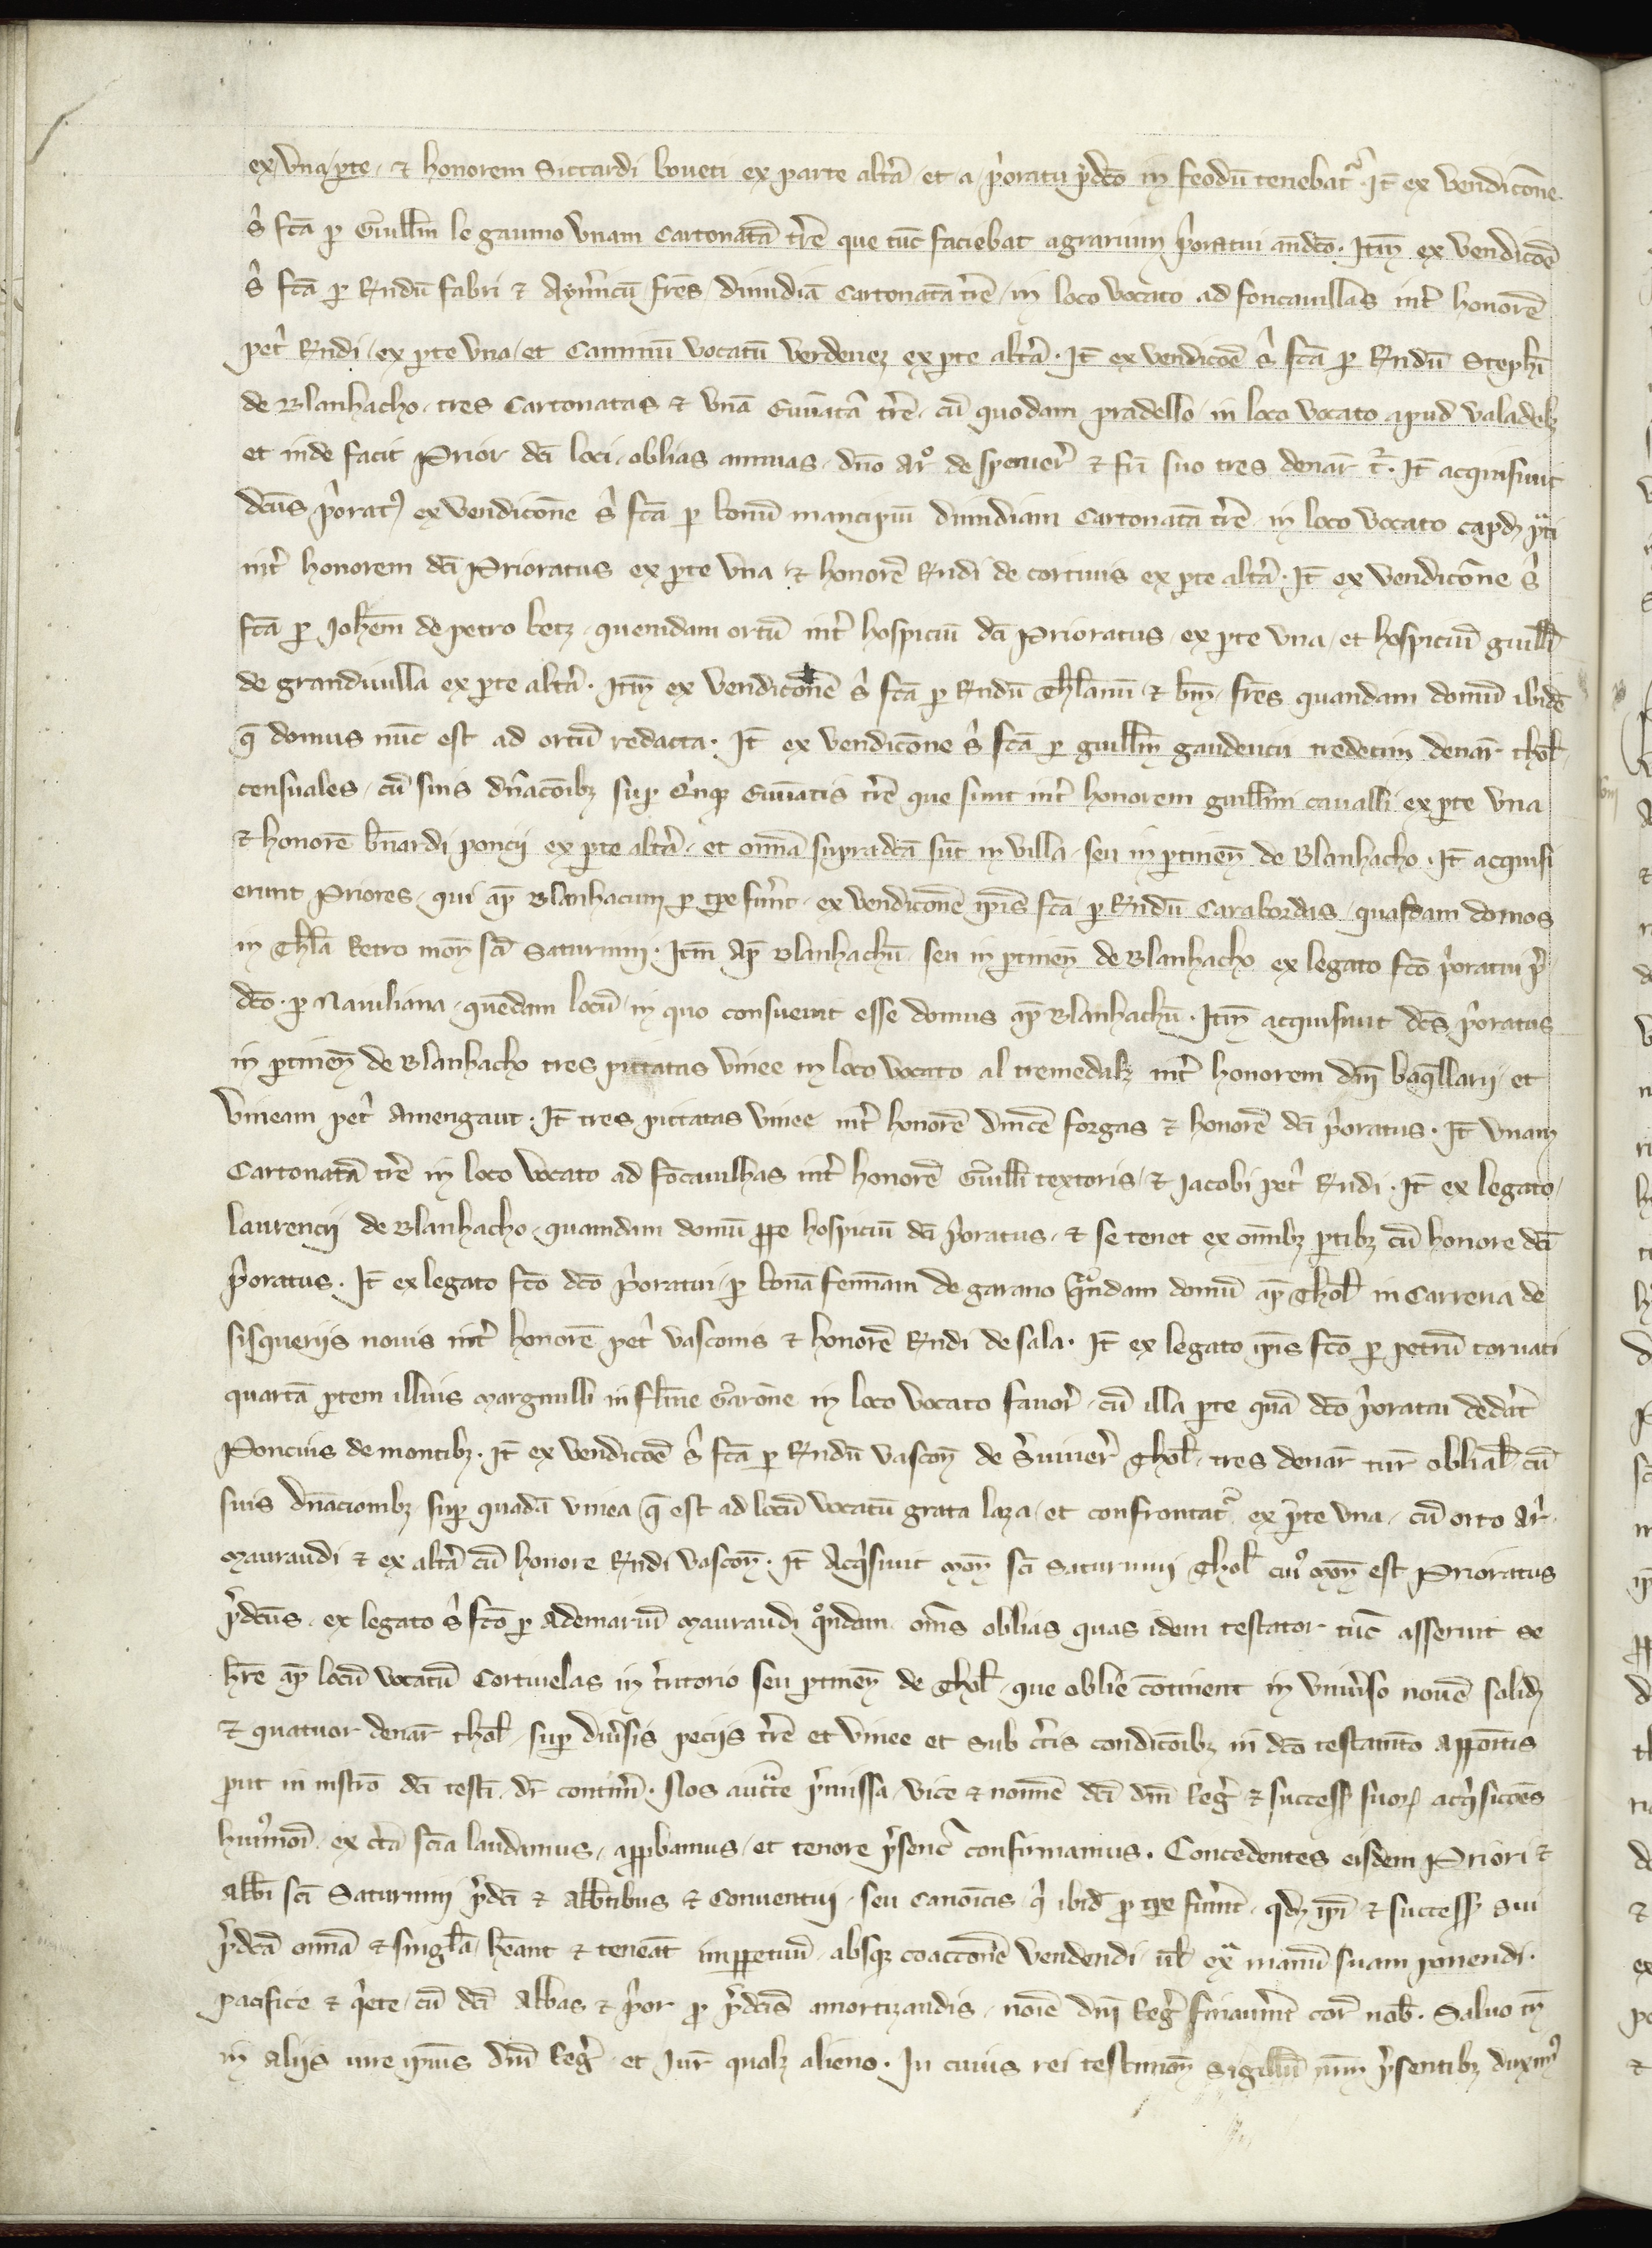 ex una p̱te et honorem Siccardi boueti ex parte alt̃a et a p̾oratu p̾dco in feodū tenebat᷑. It̄ ex vendicōne
s̾ fc̄a p̱ Guill̄m le gaumo vnam cartonatā tr̄e que tūc faciebat agrarium p̾oratui and̄co. Itm̄ ex vendicōe
s̾ fc̄a p̱ Rndū fabri et Aym̄icū fr̄es dimidiā cartonatā tr̄e in loco vocato ad foncauillas int̾ honorē
pet̾ Rndi ex p̱te vna et caminū vocatū verdenez ex p̱te alt̃a. It̄ ex vendicōe s̾ fc̄a p̱ Rndū Stephī
de Blanhacho tres cartonatas et vnā Euuatā tr̄e cū quodam pradello in loco vocato apud valadelz
et inde facit Prior dc̄i loci oblias annuas dn̄o Ar͛ de speruer̾ et fr̄i suo tres denar̄ t̾. It̄ acquisiuit
dcūs p̾orat9 ex vendicōne s̾ fc̄a p̱ bonū mancipiū dimidiam cartonatā tr̄e in loco vocato capd̄ p̾ti
int̾ honorem dc̄i Prioratus ex p̱te vna et honorē Rndi de cortinis ex p̱te alt̃a. It̄ ex vendicōne s̾
fc̄a p̱ Joh̄em de petro betz quemdam ortū int̾ hospiciū dc̄i Prioratus ex p̱te vna et hospiciū guill̄i
de grandiuilla ex p̱te alt̃a. Itm̄ ex vendiconē s̾ fc̄a p̱ Rndū Thl̄anū et bm̄ fr̄es quandam domū ibidē
q̄ domus nūc est ad ortū redacta. It̄ ex vendicōne s̾ fc̄a p̱ guill̄m gaudencii tredecim denar̄ thol̄
censuales cū suis dn̄acōibz sup̱ q̾nqz Euuatis tr̄e que sunt int̾ honorem guill̄mi caualli ex p̱te vna
et honorē bn̄ardi poncii ex p̱te alt̃a et om̄ia supradc̄a sūt in villa seu in p̱tinen̄ de Blanhacho. It̄ acquisi
erunt Priores qui ap̄ Blanhacum p̱ tp̱e fuer̄t ex vendiconē ip̄is fc̄a p̱ Rndū Carabordas quasdam domos
in Thl̄a Retro mon̄ sc̄i Saturnini. Itm̄ Ap̄ Blanhachū seu in p̱tinen̄ de Blanhacho ex legato fc̄o p̾oratui p̾
dc̄o p̱ Nauiliana quēdam locū in quo consueuit esse domus ap̄ Blanhachū. Itm̄ acquisiuit dc̄s p̾oratus
in p̱tinen̄ de Blanhacho tres pictatas vinee in loco vocato al tremedalz int̾ honorem dn̄i baq̄llarii et
vineam pet̾ Amengaut. It̄ tres pictatas vinee int̾ honorē dn̄icē forgas et honorē dc̄i p̾oratus. It̄ vnam
Cartonatā tr̄e in loco vocato ad fōcauilhas int̾ honorē Guill̄i textoris et Jacobi pet̾ Rndi. It̄ ex legato
laurencii de Blanhacho quamdam domū p̱pe hospiciū dc̄i p̾oratus et se tenet ex om̄ibz p̱tibz cū honore dc̄i
p̾oratus. It̄ ex legato fc̄o dc̄o p̾oratui p̱ bonā fem̄nam de garano q̾ndam domū ap̄ Thol̄ in Carreria de
sisqueriis nouis int̾ honorē pet̾ vasconis et honorē Rndi de sala. It̄ ex legato ip̄is fc̄o p̱ petrū toruati
quartā p̱tem illius margnilli in flūie Garōne in loco vocato fauor̾ cū illa p̱te quā dc̄o p̾oratui dedar̄t
Poncius de montibz. It̄ ex vendicōe s̾ fc̄a p̱ Rndū vascon̄ de s̾uiuer̾ Thol̄ tres denar̄ tur̄ oblial̄ cū
suis dn̄acionibz sup̱ quadā vinea q̄ est ad locū vocatū grata laza et confrontat᷑ ex p̱te vna cū orto Ar̾
mauraudi et ex alt̃a cū honore Rndi vascon̄. It̄ Acq̾siuit mon̄ sc̄i Saturnini Thol̄ cui9 mon̄ est Prioratus
p̾dcūs ex legato s̾ fc̄o p̱ Ademarū Mauraudi q̊ndam om̄s oblias quas idem testator tūc asseruit se
hr̄e ap̄ locū vocatū Cortinelas in t̾ritorio seu p̱tinen̄ de Thol̄ que oblie cōtinent in vniu̾so nouē solid̄
et quatuor denar̄ thol̄ sup̱ diu̾sis peciis tr̄e et vinee et sub c̾tis condicōibz in dc̄o testamto appōitis
put in instro dc̄i testi dr̄ contin̾i. Nos auc̾te p̾missa vice et nomīe dc̄i dn̄i Reg̾ et success̾ suor̄ acq̾sicōes
hui9mōi ex c̾ta sc̄ia laudamus app̱bamus et tenore p̾senc̾ confirmamus. Concedentes eisdem Priori et
Abb̄i sc̄i Saturnini p̾dc̄i et Abb̄tibus et Conuentui seu Canoīcis q̾ ibid̄ p̱ tp̱e fuer̄t qd̄ ip̄i et success̾ sui
p̾dc̄a om̄ia et singl̄a hēant et teneāt imp̱petuū absqz coacconē vendendi ul̄ ex̾ manū suam ponendi
pacifice et q̾ete cū dc̄i Abbas et p̾or p̱ p̾dcis amortizandis noīe dn̄i Reg̾ finauer̄t cor̄ nob̄. Saluo tn̄
in aliis iure ip̄ius dn̄i Reg̾ et Jur̄ qualz alieno. In cuius rei testimon̄ sigillū nr̄m p̾sentibz duxim9